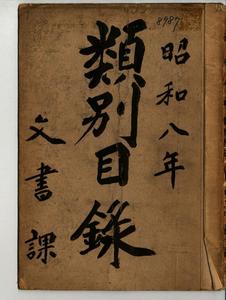 8987
昭和八年
類別目録
文書課